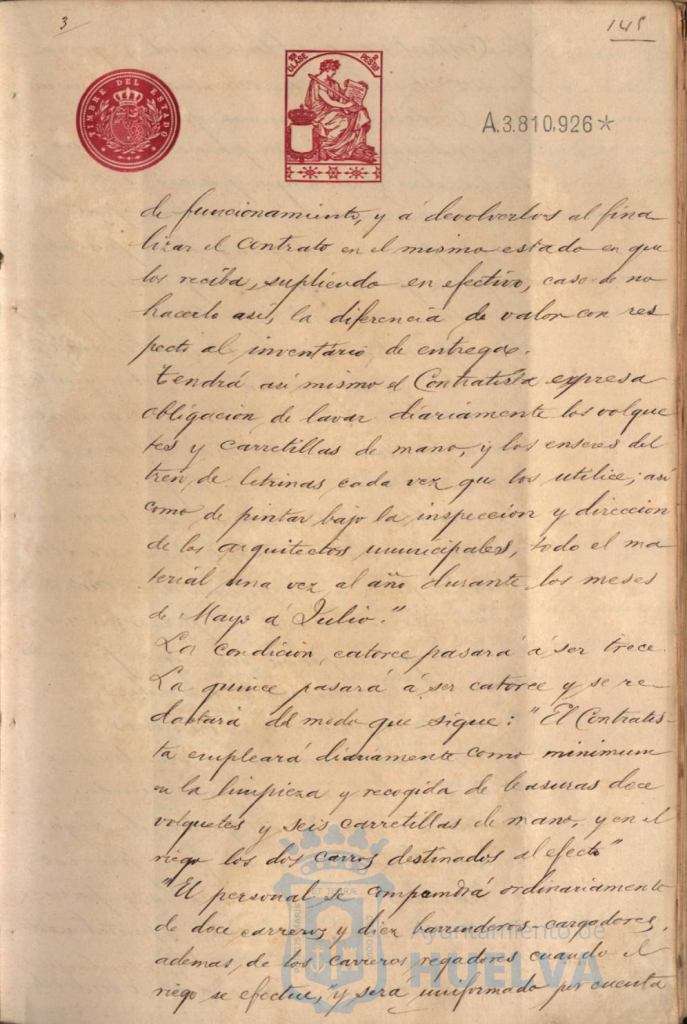 3
145
TIMBRE DEL ESTADO
CLASE
A.3.810.926*
de funcionamiento, y á devolverlos al fina
lizar el Contrato en el mismo estado en que
los reciba, supliendo en efectivo, caso de no
hacerlo así, la diferencia de valor con res
pecto al inventario de entregas.
Tendrá así mismo el Contratista expresa
obligacion de lavar diariamente los volque
tes y carretillas de mano, y los enseres del
tren de letrinas cada vez que los utilice; así
como de pintar bajo la inspeccion y direccion
de los arquitectos municipales, todo el ma
terial una vez al año durante los meses
de Mayo á Julio."
La condicion catorce pasará á ser trece
La quince pasará á ser catorce y se re
dactará del modo que sigue: "El Contratis
ta empleará diariamente como minimum
en la limpieza y recogida de basuras doce
volquetes y seis carretillas de mano, y en el
riego los dos carros destinados al efecto"
"El personal se compondrá ordinariamente
de doce carreros y diez barrenderos-cargadores,
ademas de los carreros regadores cuando el
riego se efectue, y será uniformado por cuenta
Ayuntamiento de
HUELVA